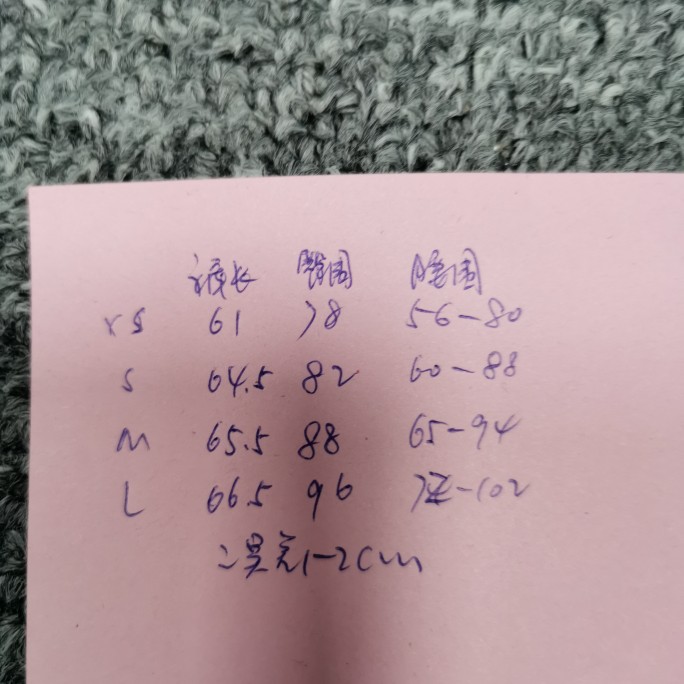 裤长 臀围 腰围
XS 61 78 56-80
S 64.5 82 60-88
M 65.5 88 65-94
L 66.5 96 -102
误差1-2cm